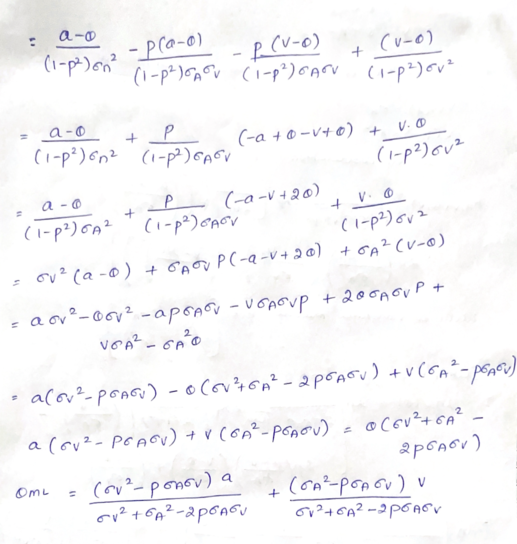 = a-θ/((1-ρ²)σA²) - ρ(a-θ)/((1-ρ²)σAσv) - ρ(v-θ)/((1-ρ²)σAσv) + (v-θ)/((1-ρ²)σv²)
= a-θ/((1-ρ²)σA²) + ρ/((1-ρ²)σAσv) (-a+θ-v+θ) + v-θ/((1-ρ²)σv²)
= a-θ/((1-ρ²)σA²) + ρ/((1-ρ²)σAσv) (-a-v+2θ) + v-θ/((1-ρ²)σv²)
= σv²(a-θ) + σAσv ρ(-a-v+2θ) + σA²(v-θ)
= aσv²-θσv²-aρσAσv - vσAσvρ + 2θσAσvρ +
vσA² - σA²θ
= a(σv²-ρσAσv) - θ(σv²+σA²-2ρσAσv) + v(σA²-ρσAσv)
a(σv²-ρσAσv) + v(σA²-ρσAσv) = θ(σv²+σA²-
2ρσAσv)
θML = (σv²-ρσAσv) a/(σv²+σA²-2ρσAσv) + (σA²-ρσAσv) v/(σv²+σA²-2ρσAσv)